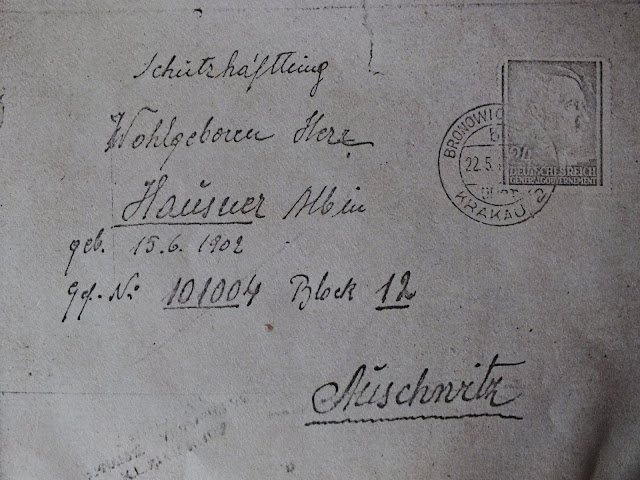 Schutzhäftling
Wohlgeboren Herr
Hausner Albin
geb. 15.6. 1902
Gef. Nº 101004 Block 12
Auschwitz
BRONOWI
22.5.
KRAKAU 2
24
DEUTSCHES REICH
GENERALGOUVERNEMENT